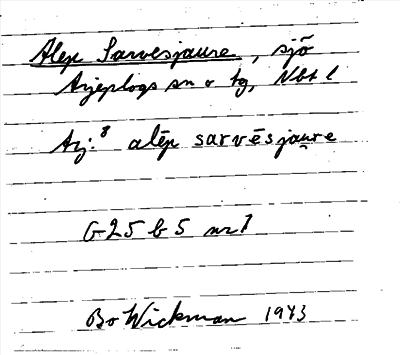 Alep Sarvesjaure, sjö
Arjeplogs sn o tg, Nbt l
Arj.8 alēp sarvēsjau̯re
G25 b5 nr 1
Bo Wickman 1943